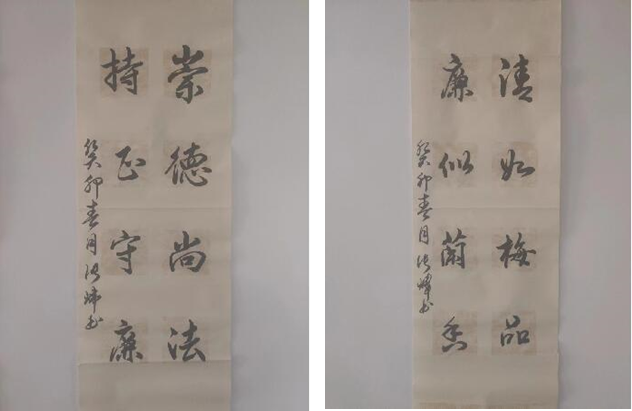 崇德尚法
持正守廉
癸卯春月
清如梅品
廉似兰香
癸卯春月